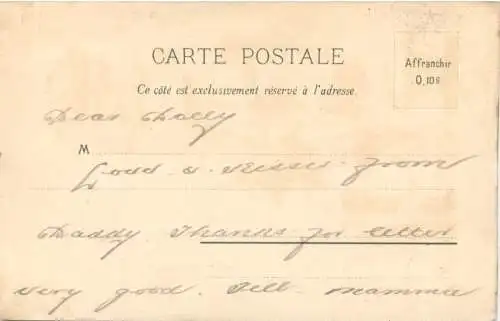 CARTE POSTALE
Ce côté est exclusivement réservé à l'adresse.
Affranchir
0,10c
Dear Molly
M
Love from
Daddy. Thanks for letter
very good. Tell mamma